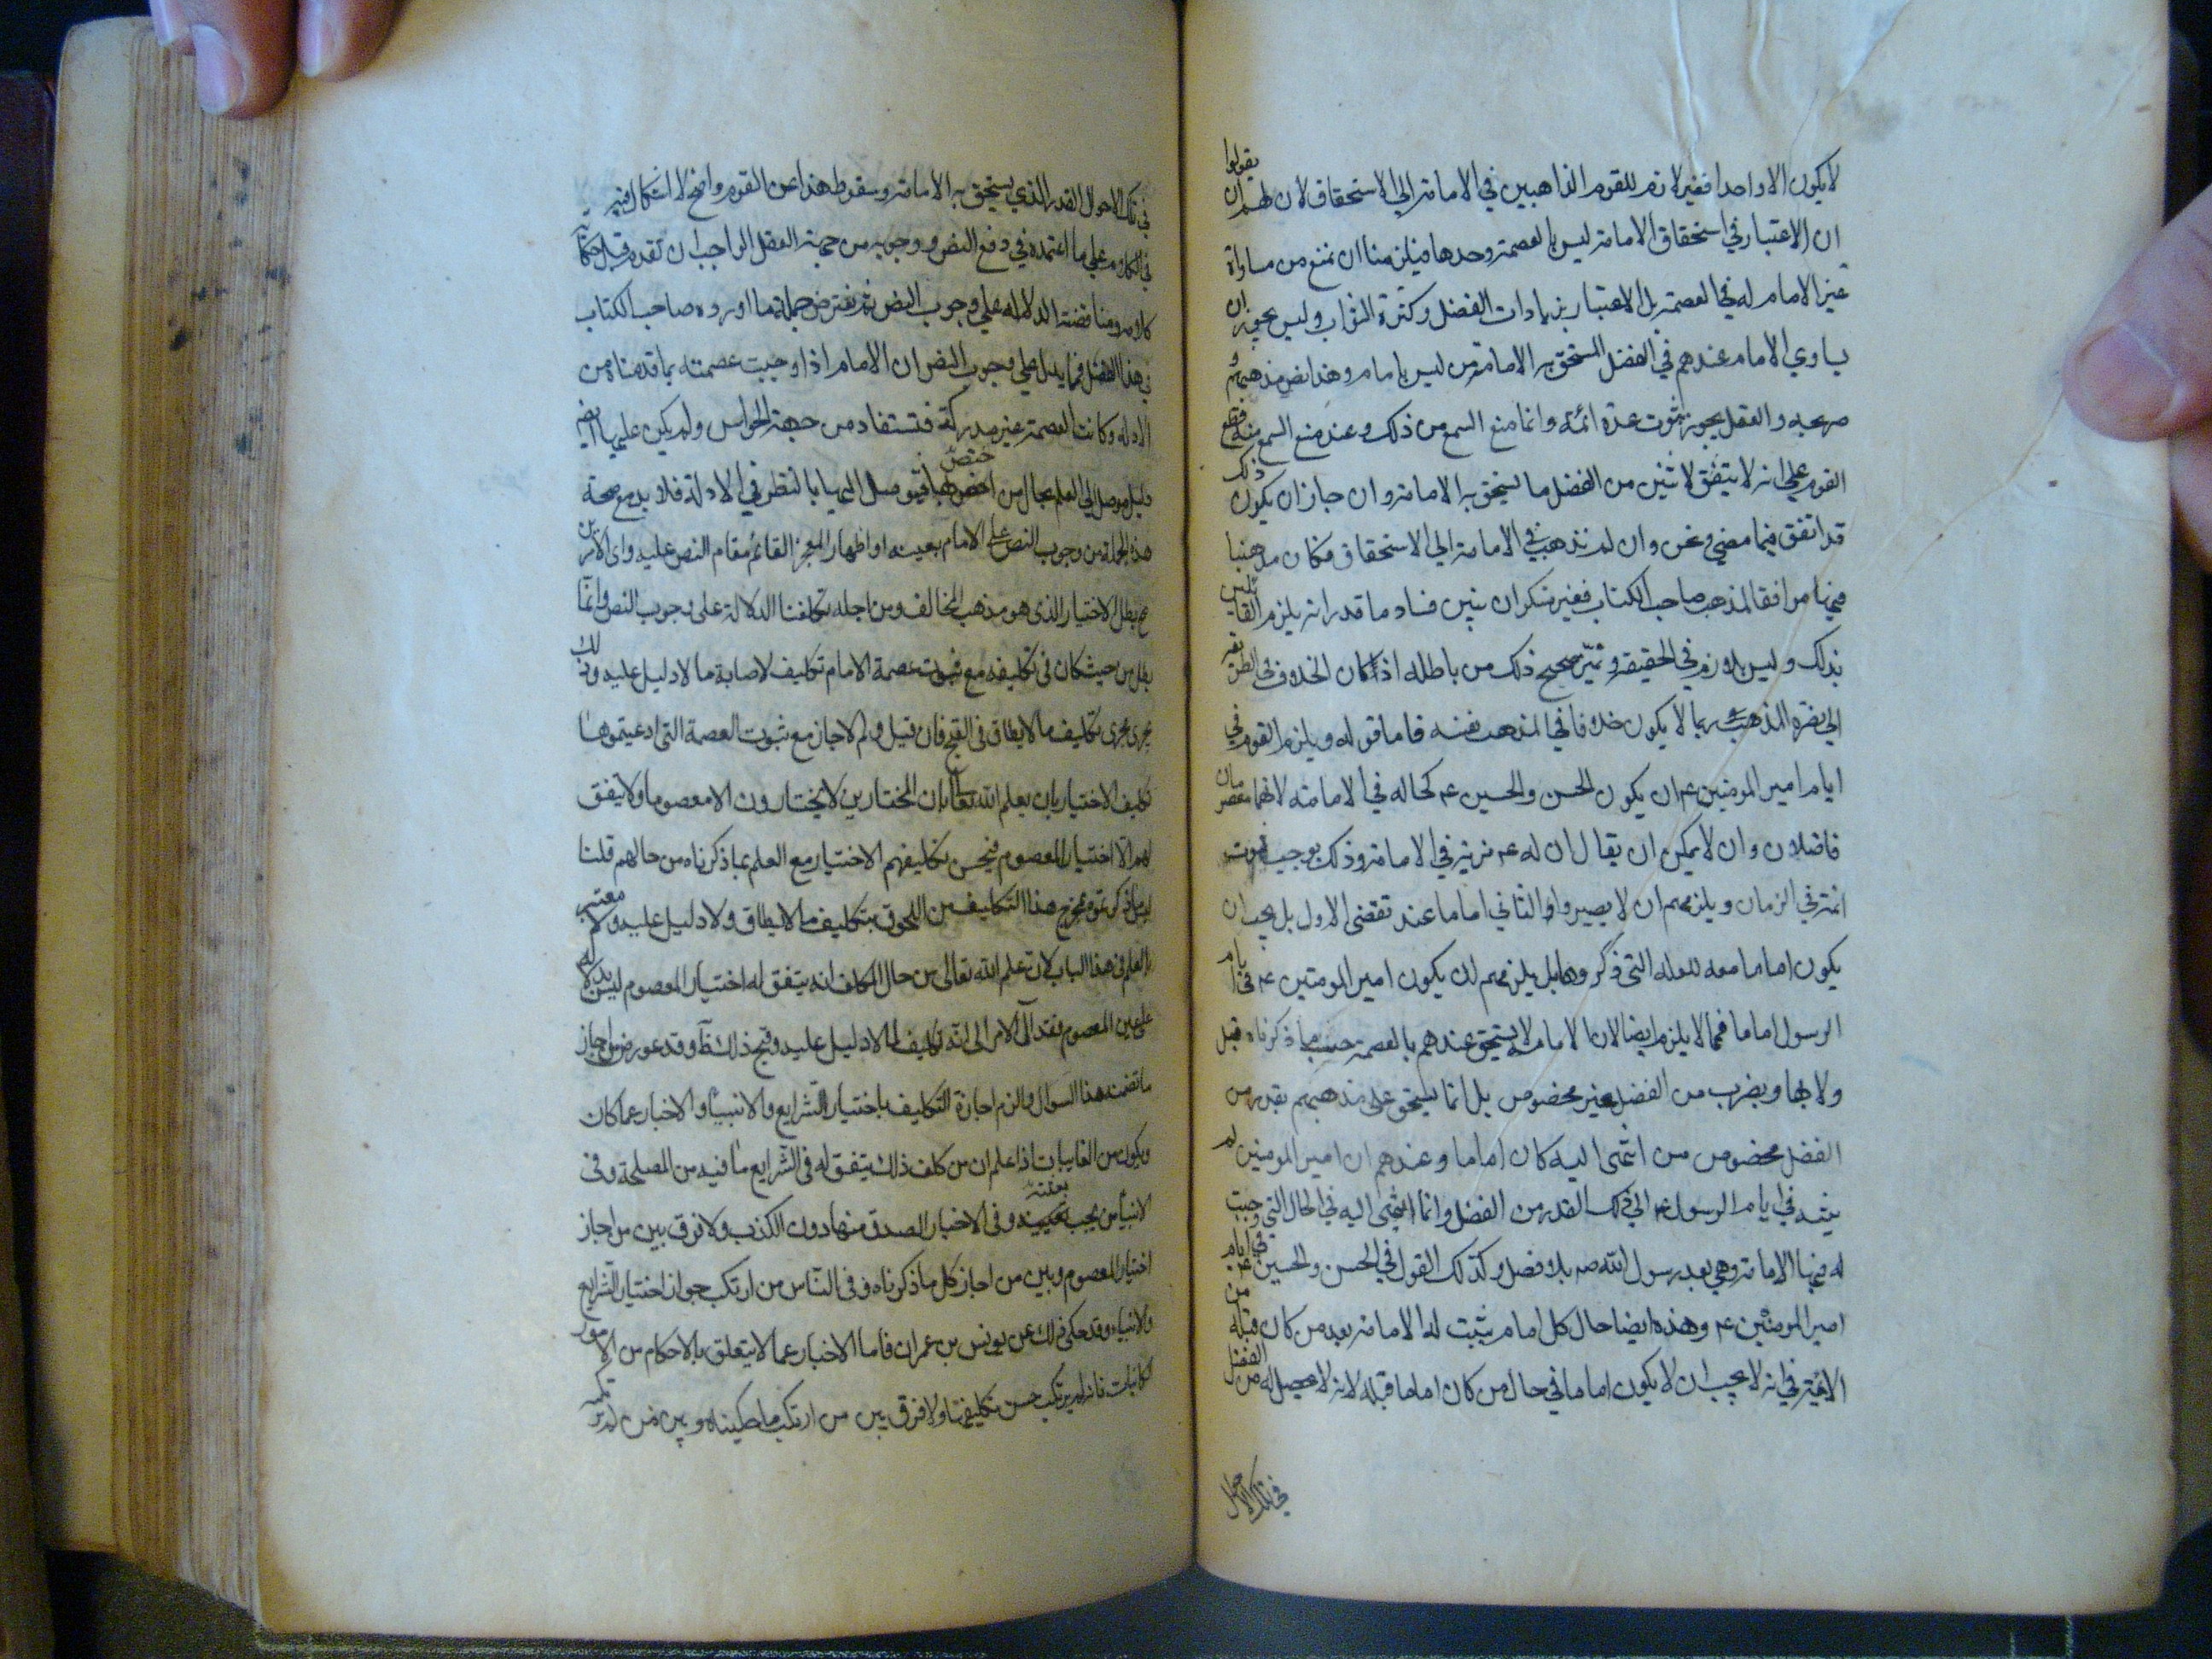 لايكون الا واحدا فغير لازم للقوم الذاهبين في الامامة الي الاستحقاق لان لهم ان يقولوا
ان الاعتبار في استحقاق الامامة ليس بالعصمة وحدها فيلزمنا ان نمنع من مساواة
غير الامام له في العصمة بل الاعتبار بزيادات الفضل وكثرة الثواب وليس يجوز ان
يساوي الامام عندهم في الفضل المستحق به الامامة من ليس بامام وهذا نص مذهبهم و
صريحه والعقل يجوز ثبوت عدة ائمه وانما منع السمع من ذلك وعند منع السمع منه قطع
القوم علي انه لا يتفق لاثنين من الفضل ما يستحق به الامامة وان جاز ان يكون ذلك
قد اتفق فيما مضي ونحن وان لم نذهب في الامامة الي الاستحقاق فكان مذهبنا
فيها موافقا لمذهب صاحب الكتاب فغير منكر ان نبين فساد ما قدر انه يلزم القائلين
بذلك وليس بلازم في الحقيقة ونميز صحيح ذلك من باطله اذا كان الخلاف في الطريقة
الي نصرة المذهب ربما لا يكون خلافا في المذهب نفسه فاما قوله ويلزم القوم في
ايام امير المومنين ع ان يكون الحسن والحسين ع كحاله في الامامة لانهما معصومان
فاضلان وان لا يمكن ان يقال ان له ع مزية في الامامة وذلك يوجب ثبوت
ائمة في الزمان ويلزمهم ان لا يصيروا الثاني اماما عند تقضي الاول بل يجب ان
يكون اماما معه للعلة التي ذكروها بل يلزمهم ان يكون امير المومنين ع في ايام
الرسول اماما فمما لا يلزم ايضا لان الامامة لا يستحق عندهم بالعصمة حسب ما ذكرناه قبل
ولا بها وبضرب من الفضل غير مخصوص بل انما يستحق علي مذهبهم بقدر من
الفضل مخصوص من انتهي اليه كان اماما وعندهم ان امير المومنين لم
ينته في ايام الرسول ص الي ذلك القدر من الفضل وانما انتهي اليه في الحال التي وجبت
له فيها الامامة وهي بعد رسول الله صه بلا فصل وكذلك القول في الحسن والحسين ع في ايام
امير المومنين ع وهذه ايضا حال كل امام يثبت له الامامة بعد من كان قبله من
الائمة في انه لا يجب ان لا يكون اماما في حال من كان اماما قبله لانه لا يحصل له من الفضل
في تلك الاحوال
في تلك الاحوال القدر الذي يستحق به الامامة وسقوط هذا عن القوم واضح لا اشكال فيه
في الكلام علي ما اعتمده في دفع النص ووجوبه من جهة العقل الواجب ان نقدم قبل حكاية
كلامه ومناقضته الدلالة علي وجوب النص ثم نعترض جملة ما اورده صاحب الكتاب
في هذا الفصل فمما يدل علي وجوب النص ان الامام اذا وجبت عصمته بما قدمناه من
الادله وكانت العصمة غير مدركة فتستفاد من جهة الحواس ولم يكن عليها ايضا
دليل موصل الي العلم بحال من اختص بها فيتوصل اليها بالنظر في الادلة فلا بد مع صحة
هذه الجملة من وجوب النص علي الامام بعينه او اظهار المعجز القائم مقام النص عليه واي الامرين
صح بطل الاختيار الذي هو مذهب المخالف ومن اجله تكلفنا الدلالة علي وجوب النص وانما
بطل من حيث كان في تكليفه مع ثبوت عصمة الامام تكليف لاصابة ما لا دليل عليه وذلك
يجري مجري تكليف ما لا يطاق في القبح فان قيل ولم لا جاز مع ثبوت العصمة التي ادعيتموها
تكليف الاختيار بان يعلم الله تعالي ان المختارين لا يختارون الا معصوما ولا يتفق
لهم الا اختيار المعصوم فيحسن تكليفهم الاختيار مع العلم بما ذكرناه من حالهم قلنا
ليس ما ذكرتموه مخرج هذا التكليف من اللحوق بتكليف ما لا يطاق ولا دليل عليه ولا معتبر
بالعلم في هذا الباب لان علم الله تعالي من حال المكلف انه يتفق له اختيار المعصوم ليس بدلالة
علي عين المعصوم فقد آل الامر الي انه تكليف لما لا دليل عليه وقبح ذلك ظ وقد عورض من اجاز
ما تضمنه هذا السوال والزم اجازة التكليف باختيار الشرايع والانبيا والاخبار عما كان
ويكون من الغايبات اذا علم ان من كلف ذلك يتفق له في الشرايع ما فيه من المصلحة وفي
الانبيا من يجب بعثته وفي الاخبار الصدق منها دون الكذب ولا فرق بين من اجاز
اختيار المعصوم وبين من اجاز كل ما ذكرناه وفي الناس من ارتكب جواز اختيار الشرايع
والانبياء وقد حكي ذلك عن يونس بن عمران فاما الاخبار عما لا يتعلق بالاحكام من الامور
الغائبات فانه لم يرتكب حسن تكليفنا ولا فرق بين من ارتكب ما حكيناه وبين من لم يرتكبه